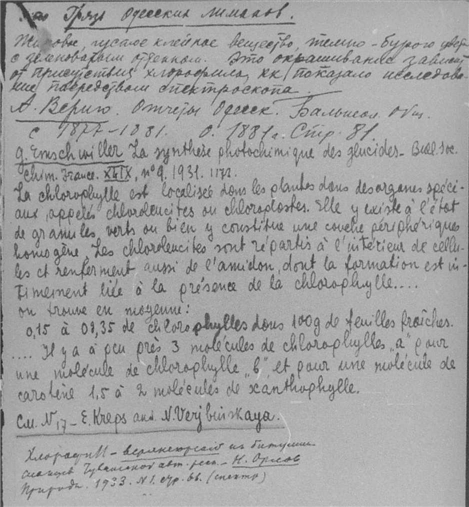 Грязь Одесских лиманов.
Жирное, густое клейкое вещество, темно-бурого цвет
с зеленоватым отенком. Это окрашивание зависит
от присутствия хлорофила, как показало исследова
ние посредством спектроскопа.
А. Вериго. Отчеты Одесск. Бальнеол. Общ.
с 1877-1881. О. 1881г. Стр. 81.
G. Emschwiller La synthèse photochimique des glucides - Bull. Soc.
Chim. France. XLIX, n°9. 1931. 1172.
La chlorophylle est localisée dans les plantes dans des organes spéci-
aux, appelés chloroleucites ou chloroplastes. Elle y existe à l'état
de granules verts ou bien y constitue une couche périphérique
homogène. Les chloroleucites sont répartis à l'intérieur de cellu-
les et renferment aussi de l'amidon, dont la formation est in-
timement liée à la présence de la chlorophylle....
on trouve en moyenne:
0,15 à 0,35 de chlorophylles dans 100g de feuilles fraîches.
.... Il y a à peu près 3 molécules de chlorophylles "a" pour
une molécule de chlorophylle "b" et pour une molécule de
carotène 1,5 à 2 molécules de xanthophylle.
См. N 17 - E. Kreps and N. Verjbinskaya.
Хлорофилл - в битумин.
сланцев Чувашской авт. респ. - Н. Орлов
Природа. 1933. N 1. стр. 66. (спектр)